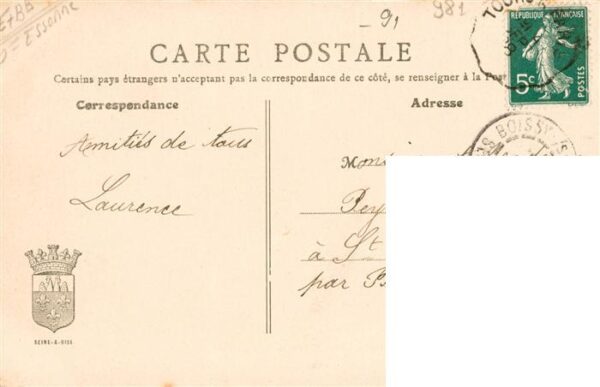 E+BB
= Essonne
-91
981
CARTE POSTALE
Certains pays étrangers n'acceptant pas la correspondance de ce côté, se renseigner à la Post
Correspondance
Adresse
RÉPUBLIQUE FRANÇAISE
5c
POSTES
TOURY
BOISSY
Amitiés de tous
Laurence
Monsi
Pey
à St
par
SEINE-&-OISE